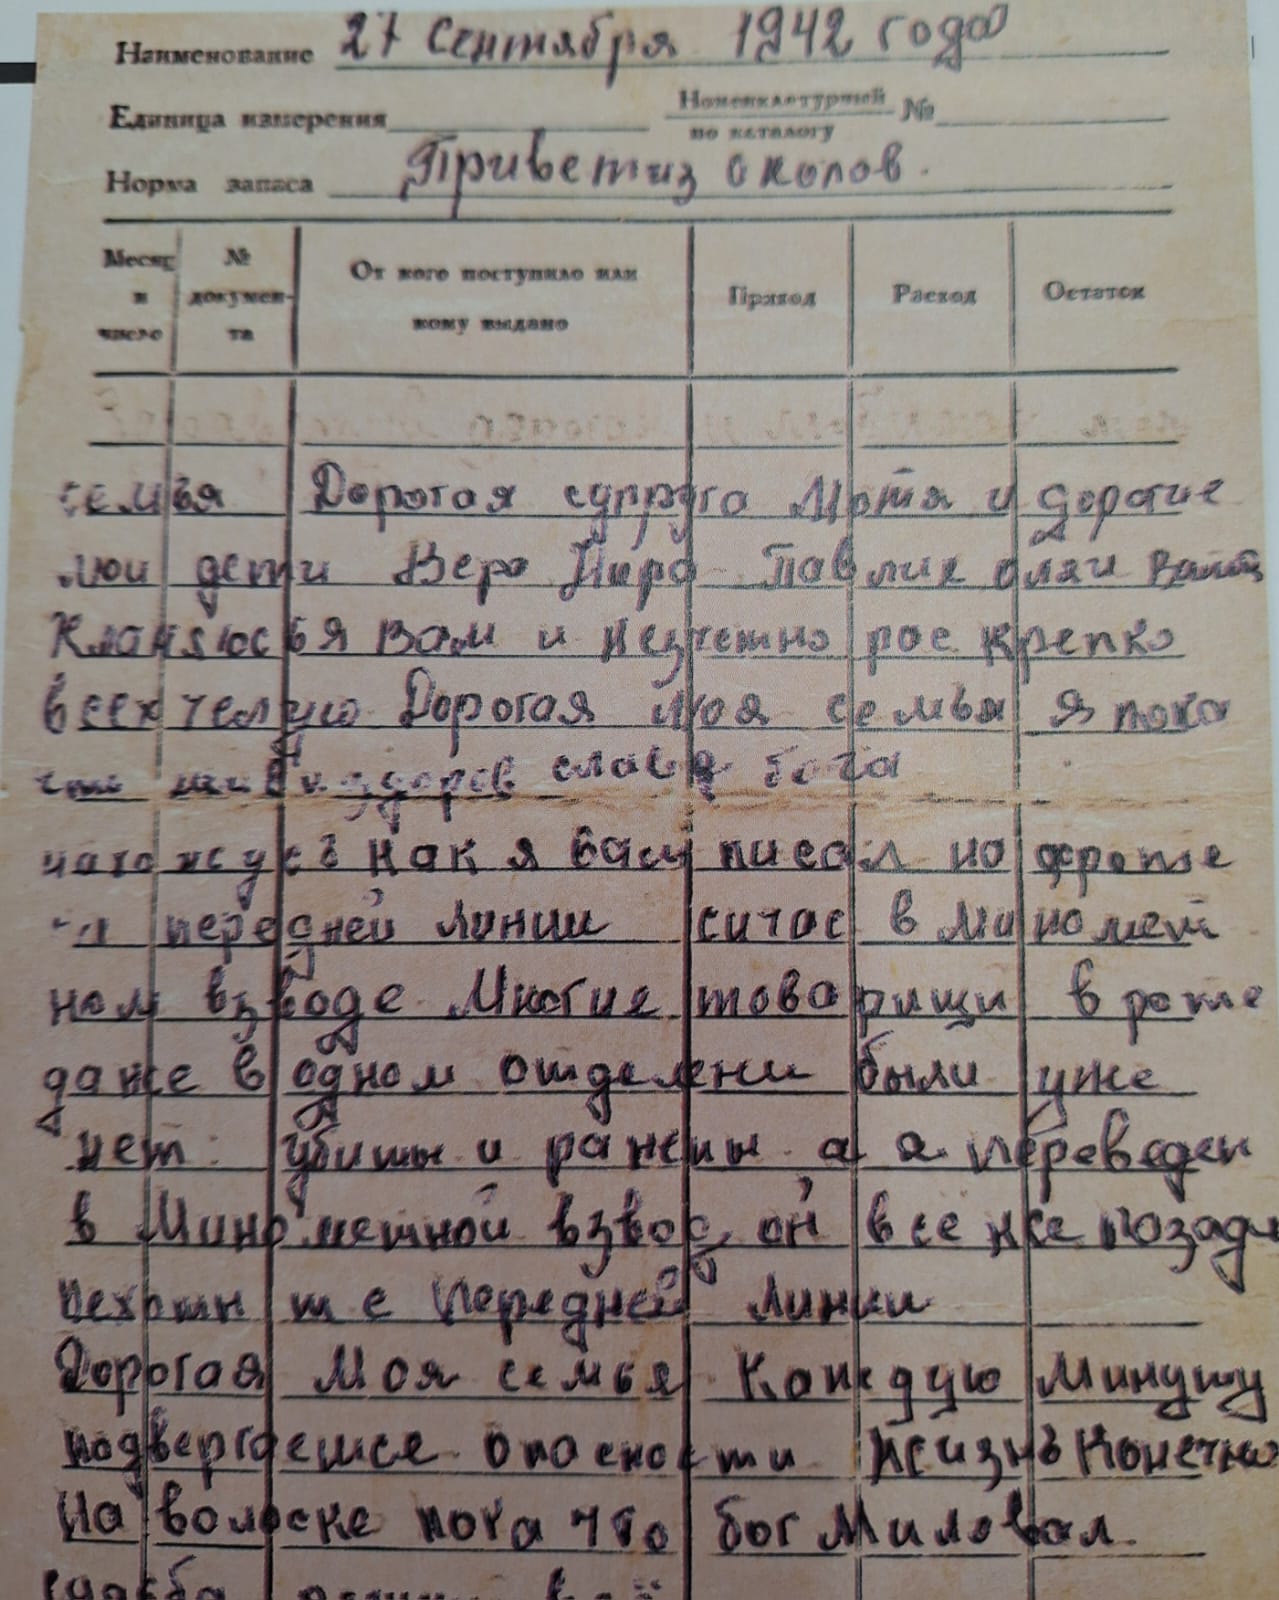 Наименование 27 Сентября 1942 года
Единица измерения Номенклатурный №
по каталогу
Норма запаса Привет из окопов.
Месяц и число № документа От кого поступило или кому выдано Приход Расход Остаток
семья Дорогая супруга Мотя и дорогие
мои дети Вера Нюра Павлик оля и
Кланяюсья Вам и незчетно рас крепко
всех челую Дорогая моя семья я пока
что жив и здоров слава бога
нахожусь как я вам писал на фронте
передней линии сичас в миномет
ном взводе Многие товарищи в роте
даже в одном отделени были уже
нет убиты и ранены а я переведен
в Минометной взвод, он все же позади
пехоты т е передней линии
Дорогая Моя семья Каждую минуту
подвергаешсе опасности жизнь Конечно
На волоске пока что бог Миловал.
судьба